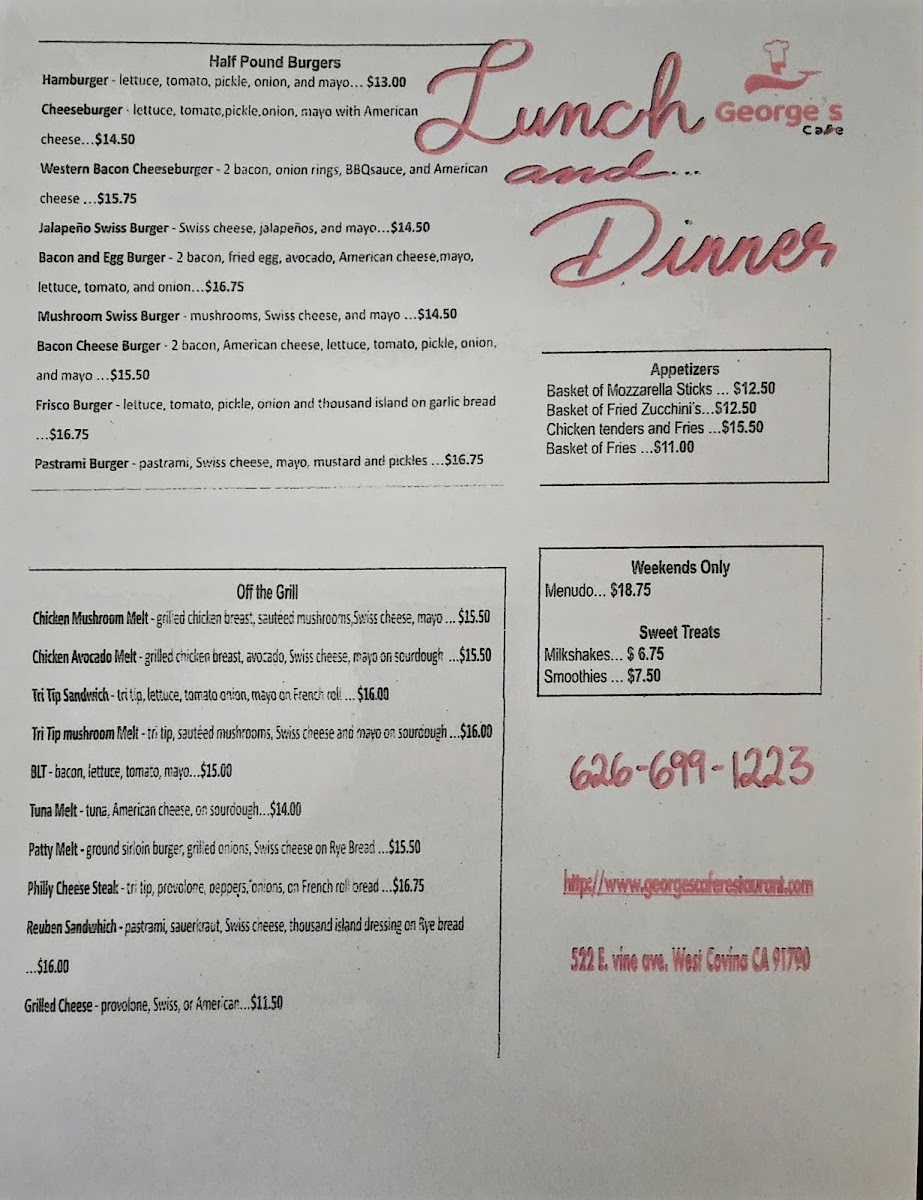 Lunch
and...
Dinner
George's
Cafe
Half Pound Burgers
Hamburger - lettuce, tomato, pickle, onion, and mayo... $13.00
Cheeseburger - lettuce, tomato,pickle,onion, mayo with American
cheese...$14.50
Western Bacon Cheeseburger - 2 bacon, onion rings, BBQsauce, and American
cheese ...$15.75
Jalapeño Swiss Burger - Swiss cheese, jalapeños, and mayo...$14.50
Bacon and Egg Burger - 2 bacon, fried egg, avocado, American cheese,mayo,
lettuce, tomato, and onion...$16.75
Mushroom Swiss Burger - mushrooms, Swiss cheese, and mayo ...$14.50
Bacon Cheese Burger - 2 bacon, American cheese, lettuce, tomato, pickle, onion,
and mayo ...$15.50
Frisco Burger - lettuce, tomato, pickle, onion and thousand island on garlic bread
...$16.75
Pastrami Burger - pastrami, Swiss cheese, mayo, mustard and pickles ...$16.75
Appetizers
Basket of Mozzarella Sticks ... $12.50
Basket of Fried Zucchini's...$12.50
Chicken tenders and Fries ...$15.50
Basket of Fries ...$11.00
Off the Grill
Chicken Mushroom Melt - grilled chicken breast, sautéed mushrooms,Swiss cheese, mayo ... $15.50
Chicken Avocado Melt - grilled chicken breast, avocado, Swiss cheese, mayo on sourdough ...$15.50
Tri Tip Sandwich - tri tip, lettuce, tomato onion, mayo on French roll ... $16.00
Tri Tip mushroom Melt - tri tip, sautéed mushrooms, Swiss cheese and mayo on sourdough ...$16.00
BLT - bacon, lettuce, tomato, mayo...$15.00
Tuna Melt - tuna, American cheese, on sourdough...$14.00
Patty Melt - ground sirloin burger, grilled onions, Swiss cheese on Rye Bread ...$15.50
Philly Cheese Steak - tri tip, provolone, peppers, onions, on French roll bread ...$16.75
Reuben Sandwhich - pastrami, sauerkraut, Swiss cheese, thousand island dressing on Rye bread
...$16.00
Grilled Cheese - provolone, Swiss, or American...$11.50
Weekends Only
Menudo... $18.75
Sweet Treats
Milkshakes... $ 6.75
Smoothies ... $7.50
626-699-1223
http://www.georgescaferestaurant.com
522 E. vine ave, West Covina CA 91790